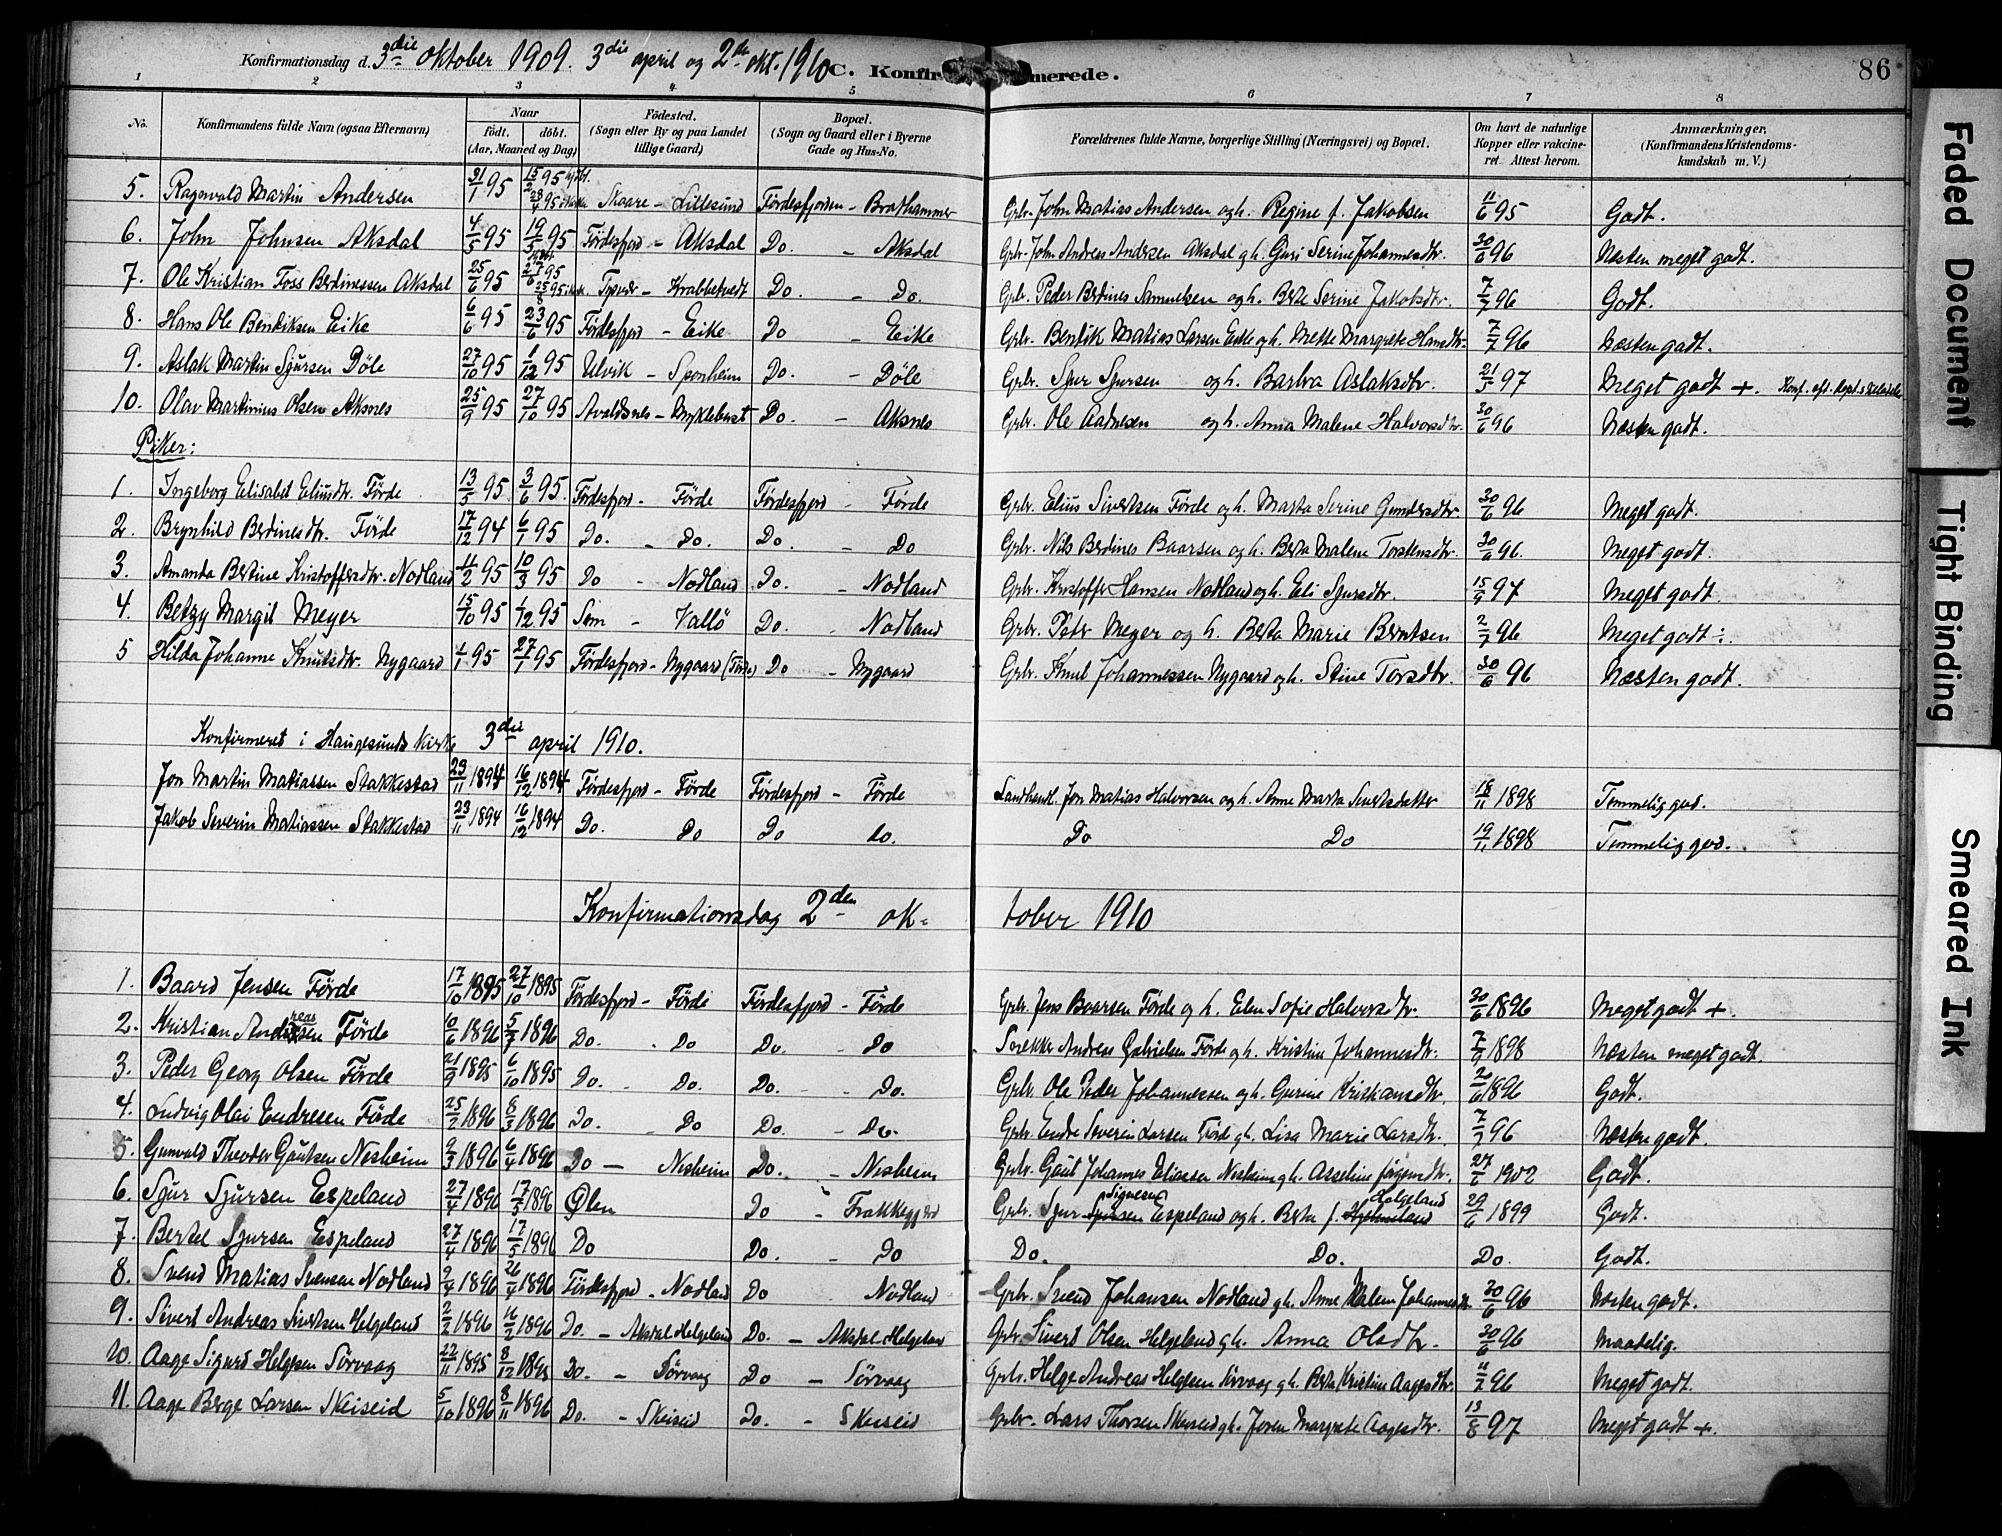 Konfirmationsdag d. 3die oktober 1909. 3die april og 2den okt. 1910 C. Konfirmerede. 86
1 2 3 4 5 6 7 8
No. Konfirmandens fulde Navn (ogsaa Efternavn) Naar født. døbt. (Aar, Maaned og Dag) Fødested. (Sogn eller By og paa Landet tillige Gaard) Bopæl. (Sogn og Gaard eller i Byerne Gade og Hus-No. Forældrenes fulde Navne, borgerlige Stilling (Næringsvei) og Bopæl. Om havt de naturlige Kopper eller vaccineret. Attest herom. Anmærkninger. (Konfirmandens Kristendomskundskab m. V.)
5. Ragnvald Martin Andersen 31/1 95 15/2 95 hjdbt. 28/4 95 i kirken Skaare - Lillesund Førdesfjorden - Bradhammer Grbr. John Matias Andersen og h. Regine f. Jakobsen 11/6 95 Godt.
6. John Johnsen Aksdal 4/5 95 19/5 95 Førdesfjord - Aksdal Do. - Aksdal Grbr. John Andreas Andersen Aksdal og h. Guri Serine Johannesdtr. 30/6 96 Næsten meget godt.
7. Ole Kristian Foss Berdinessen Aksdal 25/6 95 27/6 95 25/8 95 Tysvær - Krabbetvedt Do. - Do. Grbr. Peder Berdines Samuelsen og h. Berte Serine Jakobsdtr. 7/7 96 Godt.
8. Hans Ole Bendiksen Eike 6/6 95 23/6 95 Førdesfjord - Eike Do - Eike Grbr. Bendik Matias Larsen Eike og h. Mette Margrete Hansdtr. 7/7 96 Næsten godt.
9. Aslak Martin Sjursen Døle 27/10 95 1/12 95 Ulvik - Sponheim Do. - Døle Grbr. Sjur Sjursen og h. Barbra Aslaksdtr. 21/5 97 Meget godt +. Konf. eft.
10. Olav Martinius Olsen Aksnes 25/9 95 27/10 95 Avaldsnes - Myklebust Do. - Aksnes Grbr. Ole Aadnesen og h. Anna Malene Halvorsdtr. 30/6 96 Næsten godt.
Piker:
1. Ingeborg Elisabet Eliusdtr. Førde 13/5 95 3/6 95 Førdesfjord - Førde Førdesfjord - Førde Grbr. Elius Sivertsen Førde og h. Marta Serine Gundersdtr. 30/6 96 Meget godt.
2. Brynhild Berdinesdtr. Førde 17/12 94 6/1 95 Do. - Do. Do. - Do Grbr. Nils Berdines Baarsen og h. Berta Malene Torstensdtr. 30/6 96. Meget godt.
3. Amanda Bertine Kristoffersdtr. Nodland 11/2 95 10/3 95 Do - Nodland Do. - Nodland Grbr. Kristoffer Hansen Nodland og h. Eli Sjursdtr. 15/9 97 Meget godt.
4. Betzy Margit Meyer 15/10 95 1/12 95 Sem - Vallø Do. - Nodland Grbr. Petr Meyer og h. Berta Marie Berntsen 2/7 96 Meget godt ÷.
5 Hilda Johanne Knutsdtr. Nygaard 1/1 95 27/1 95 Førdesfjord - Nygaard (Førde) Do - Nygaard Grbr. Knut Johannessen Nygaard og h. Stine Torsdtr. 30/6 96 Næsten godt.
Konfirmeret i Haugesunds kirke 3die april 1910.
Jon Martin Matiassen Stakkestad 23/11 1894 16/12 1894 Førdesfjord - Førde Førdesfjord - Førde Landhandl. Jon Matias Halvorsen og h. Anne Marta Sivertsdatter 18/11 1898 Temmelig god.
Jakob Severin Matiassen Stakkestad 23/11 1894 16/12 1894 Do. Do Do do. Do Do 19/11 1898 Temmelig god.
Konfirmationsdag 2den oktober 1910
1. Baard Jensen Førde 17/10 1895 27/10 1895 Førdesfjord - Førde Førdesfjord - Førde Grbr. Jens Baarsen Førde og h. Elen Sofie Halvorsdtr. 30/6 1896 Meget godt +.
2. Kristian Andreassen Førde 10/6 1896 5/7 1896 Do. - Do Do. - Do Snekker Andreas Gabrielsen Førde og h. Kristine Johannesdtr. 7/9 1898 Næsten meget godt.
3. Peder Georg Olsen Førde 21/9 1895 6/10 1895 Do. - Do. Do. - Do. Grbr. Ole Peder Johannessen og h. Gurine Kristiansdtr. 1896 Godt.
4. Ludvig Olai Endresen Førde 25/2 1896 8/3 1896 Do. - Do Do. - Do. Grbr. Endre Severin Larsen Førde og h. Lisa Marie Larsdtr. 7/7 96 Næsten godt.
5. Gunvald Theodor Gautsen Nesheim 9/3 1896 6/4 1896 Do - Nesheim Do. - Nesheim Grbr. Gaut Johannes Eliassen Nesheim og h. Asseline Jørgensdtr. 27/6 1902 Godt.
6. Sjur Sjursen Espeland 27/4 1896 17/5 1896 Ølen Do - Frakkagjerd Grbr. Sjur Signesen Espeland og h. Berta f. Helgeland 29/6 1899 Godt.
7. Bertel Sjursen Espeland 27/4 1896 17/5 1896 Do Do. - Do Do. Do. Do. Godt.
8. Svend Matias Svensen Nodland 9/4 1896 26/4 1896 Førdesfjord - Nodland Do Nodland Grbr. Svend Johansen Nodland og h. Anne Malene Johannesdtr. 30/6 96 Næsten godt.
9. Sivert Andreas Sivertsen Helgeland 2/2 1896 16/2 1896 Do. - Aksdal Helgeland Do. - Aksdal Helgeland Grbr. Sivert Olsen Helgeland og h. Anna Olsdtr. 30/6 96 Maadelig.
10. Aage Sigurd Helgesen Sørvaag 22/11 1895 8/12 1895 Do. - Sørvaag Do - Sørvaag Grbr. Helge Andreas Helgesen Sørvaag og h. Berta Kristine Aagesdtr. 11/7 96 Meget godt.
11. Aage Berge Larsen Skeiseid 5/10 1896 8/11 1896 Do. - Skeiseid Do. - Skeiseid Grbr. Lars Thorsen Skeiseid og h. Joren Margrete Aagesdtr. 13/8 97 Meget godt +.
Faded Document
Tight Binding
Smeared Ink